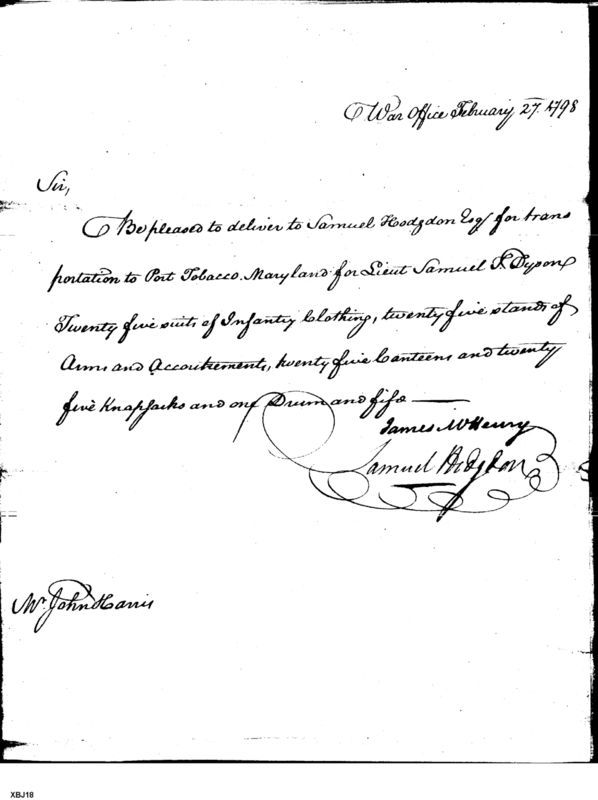 War Office February 27. 1798
Sir,
Be pleased to deliver to Samuel Hodgdon Esq for trans
portation to Port Tobacco. Maryland for Lieut Samuel T. Dyson
Twenty five suits of Infantry Clothing, twenty five stands of
Arms and Accoutrements, twenty five Canteens and twenty
five Knapsacks and one Drum and fife
James McHenry
Samuel Hodgdon
Mr. John Harris
XBJ18